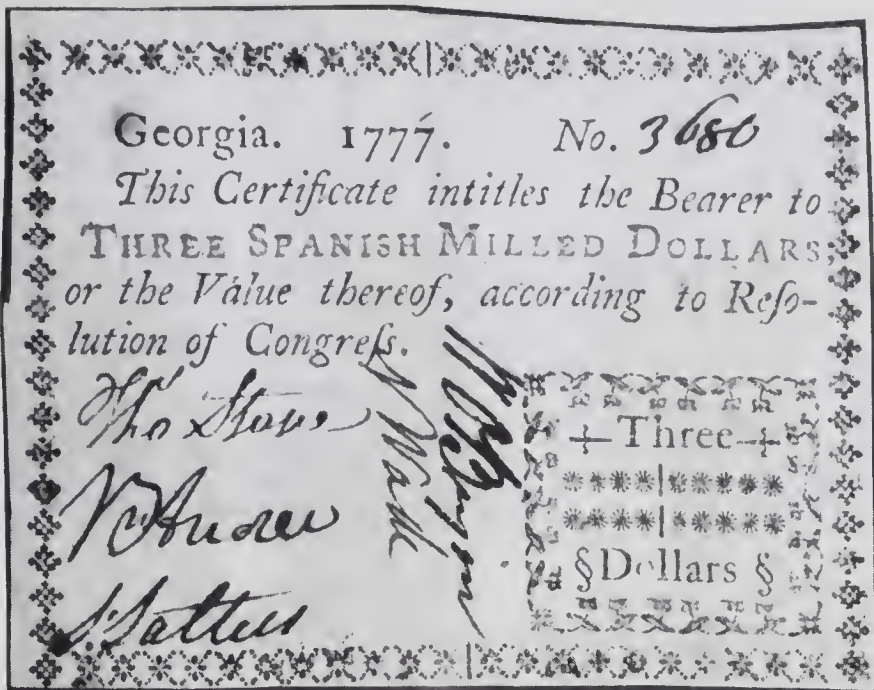 Georgia. 1777. No. 3680
This Certificate intitles the Bearer to
THREE SPANISH MILLED DOLLARS,
or the Value thereof, according to Reſo-
lution of Congreſs.
Tho Stone
N Wade
Wm O'Bryen
Wm Andrew
Saltus
Three
§Dollars §